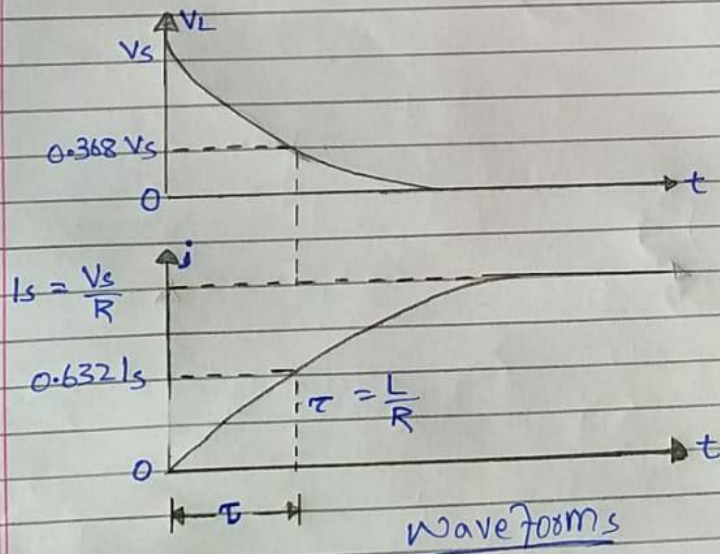 VL
Vs
0.368 Vs
0
t
i
Is = Vs/R
0.632 Is
τ = L/R
0
t
τ
Waveforms